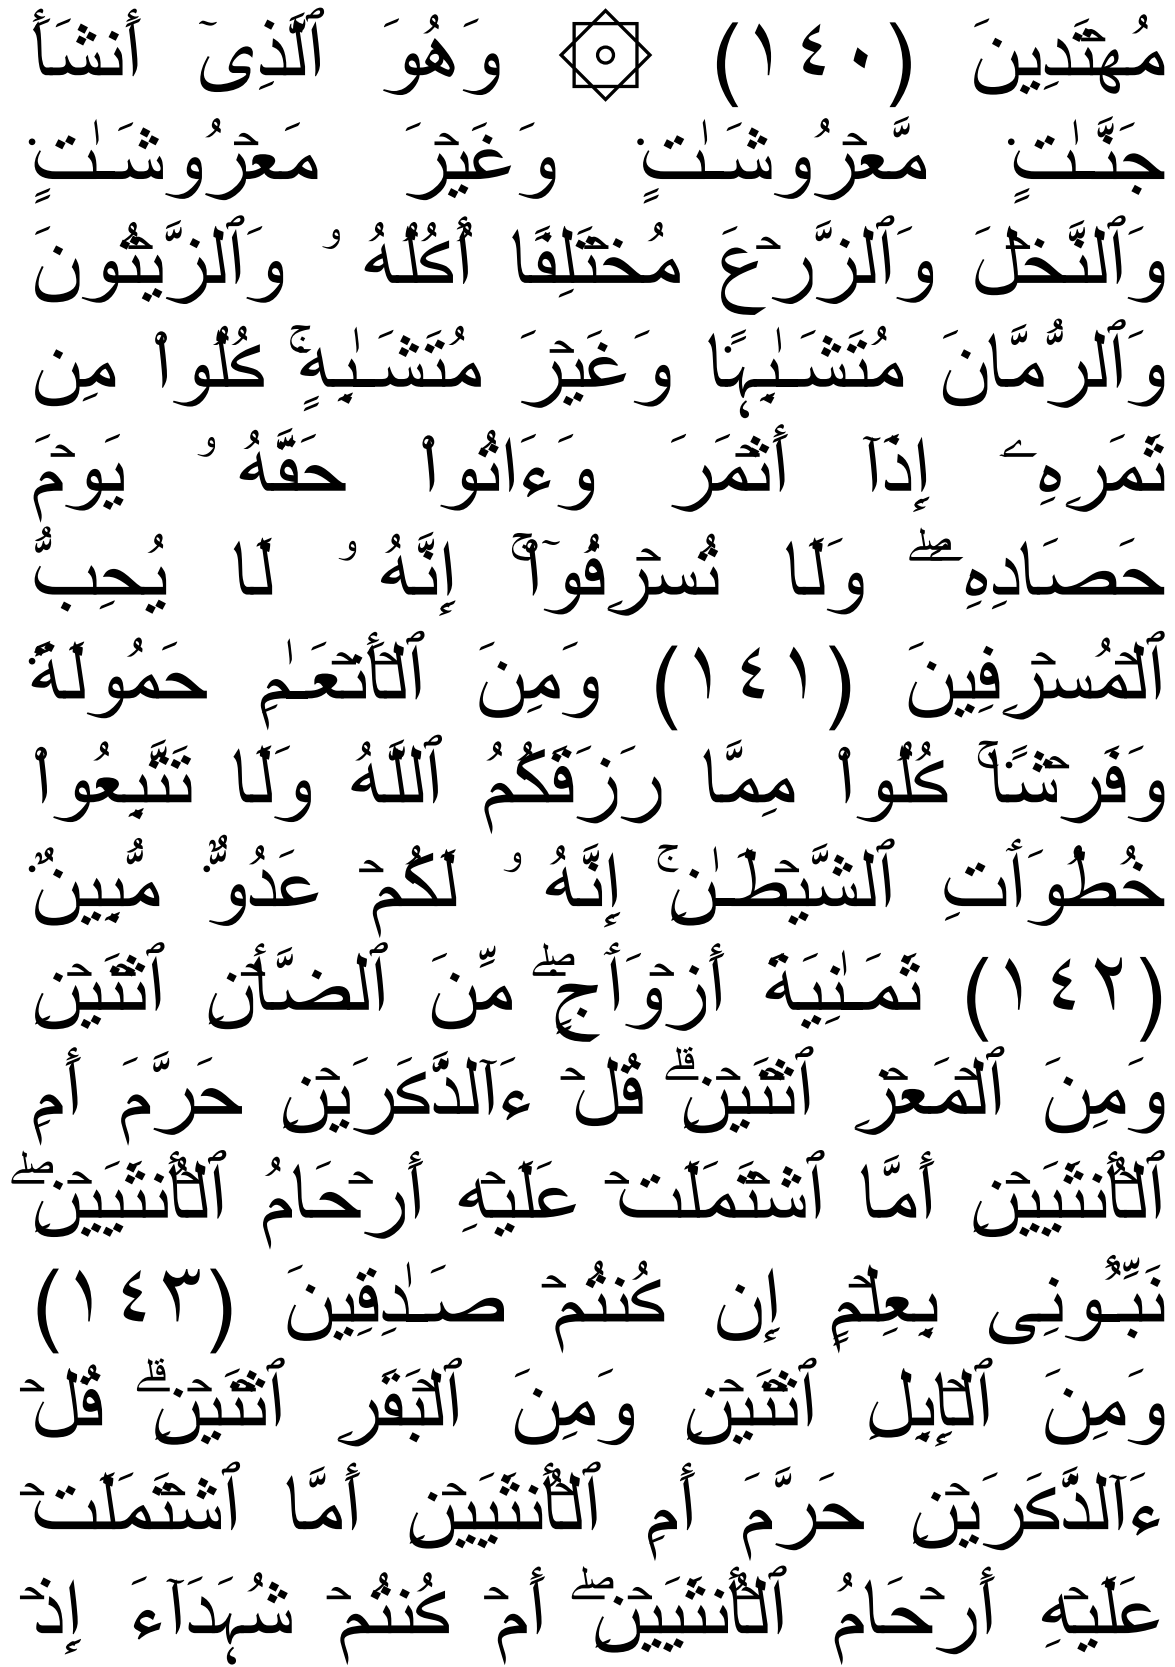 مُهۡتَدِينَ (١٤٠) ۞ وَهُوَ ٱلَّذِىٓ أَنشَأَ
جَنَّـٰتٍ۬ مَّعۡرُوشَـٰتٍ۬ وَغَيۡرَ مَعۡرُوشَـٰتٍ۬
وَٱلنَّخۡلَ وَٱلزَّرۡعَ مُخۡتَلِفًا أُڪُلُهُ ۥ وَٱلزَّيۡتُونَ
وَٱلرُّمَّانَ مُتَشَـٰبِہً۬ا وَغَيۡرَ مُتَشَـٰبِهٍ۬‌ۚ ڪُلُواْ مِن
ثَمَرِهِۦۤ إِذَآ أَثۡمَرَ وَءَاتُواْ حَقَّهُ ۥ يَوۡمَ
حَصَادِهِۦ‌ۖ وَلَا تُسۡرِفُوٓاْ‌ۚ إِنَّهُ ۥ لَا يُحِبُّ
ٱلۡمُسۡرِفِينَ (١٤١) وَمِنَ ٱلۡأَنۡعَـٰمِ حَمُولَةً۬
وَفَرۡشً۬ا‌ۚ ڪُلُواْ مِمَّا رَزَقَكُمُ ٱللَّهُ وَلَا تَتَّبِعُواْ
خُطُوَٲتِ ٱلشَّيۡطَـٰنِ‌ۚ إِنَّهُ ۥ لَكُمۡ عَدُوٌّ۬ مُّبِينٌ۬
(١٤٢) ثَمَـٰنِيَةَ أَزۡوَٲجٍ۬‌ۖ مِّنَ ٱلضَّأۡنِ ٱثۡنَيۡنِ
وَمِنَ ٱلۡمَعۡزِ ٱثۡنَيۡنِ‌ۗ قُلۡ ءَآلذَّڪَرَيۡنِ حَرَّمَ أَمِ
ٱلۡأُنثَيَيۡنِ أَمَّا ٱشۡتَمَلَتۡ عَلَيۡهِ أَرۡحَامُ ٱلۡأُنثَيَيۡنِ‌ۖ
نَبِّـُٔونِى بِعِلۡمٍ إِن ڪُنتُمۡ صَـٰدِقِينَ (١٤٣)
وَمِنَ ٱلۡإِبِلِ ٱثۡنَيۡنِ وَمِنَ ٱلۡبَقَرِ ٱثۡنَيۡنِ‌ۗ قُلۡ
ءَآلذَّڪَرَيۡنِ حَرَّمَ أَمِ ٱلۡأُنثَيَيۡنِ أَمَّا ٱشۡتَمَلَتۡ
عَلَيۡهِ أَرۡحَامُ ٱلۡأُنثَيَيۡنِ‌ۖ أَمۡ ڪُنتُمۡ شُہَدَآءَ إِذۡ